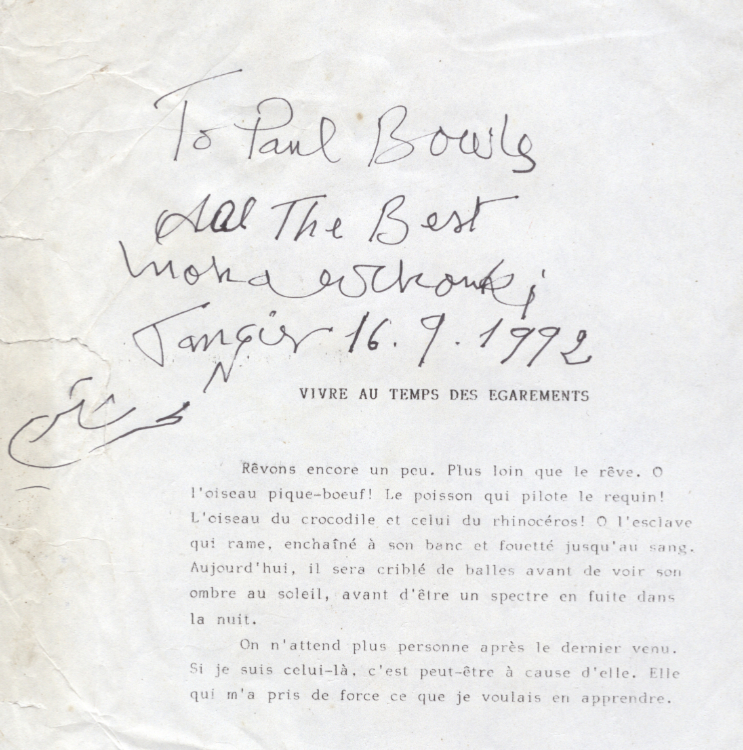 To Paul Bowles
All The Best
Mohamed Choukri
Tangier 16.9.1992
VIVRE AU TEMPS DES EGAREMENTS
Rêvons encore un peu. Plus loin que le rêve. O
l'oiseau pique-boeuf! Le poisson qui pilote le requin!
L'oiseau du crocodile et celui du rhinocéros! O l'esclave
qui rame, enchaîné à son banc et fouetté jusqu'au sang.
Aujourd'hui, il sera criblé de balles avant de voir son
ombre au soleil, avant d'être un spectre en fuite dans
la nuit.
On n'attend plus personne après le dernier venu.
Si je suis celui-là, c'est peut-être à cause d'elle. Elle
qui m'a pris de force ce que je voulais en apprendre.